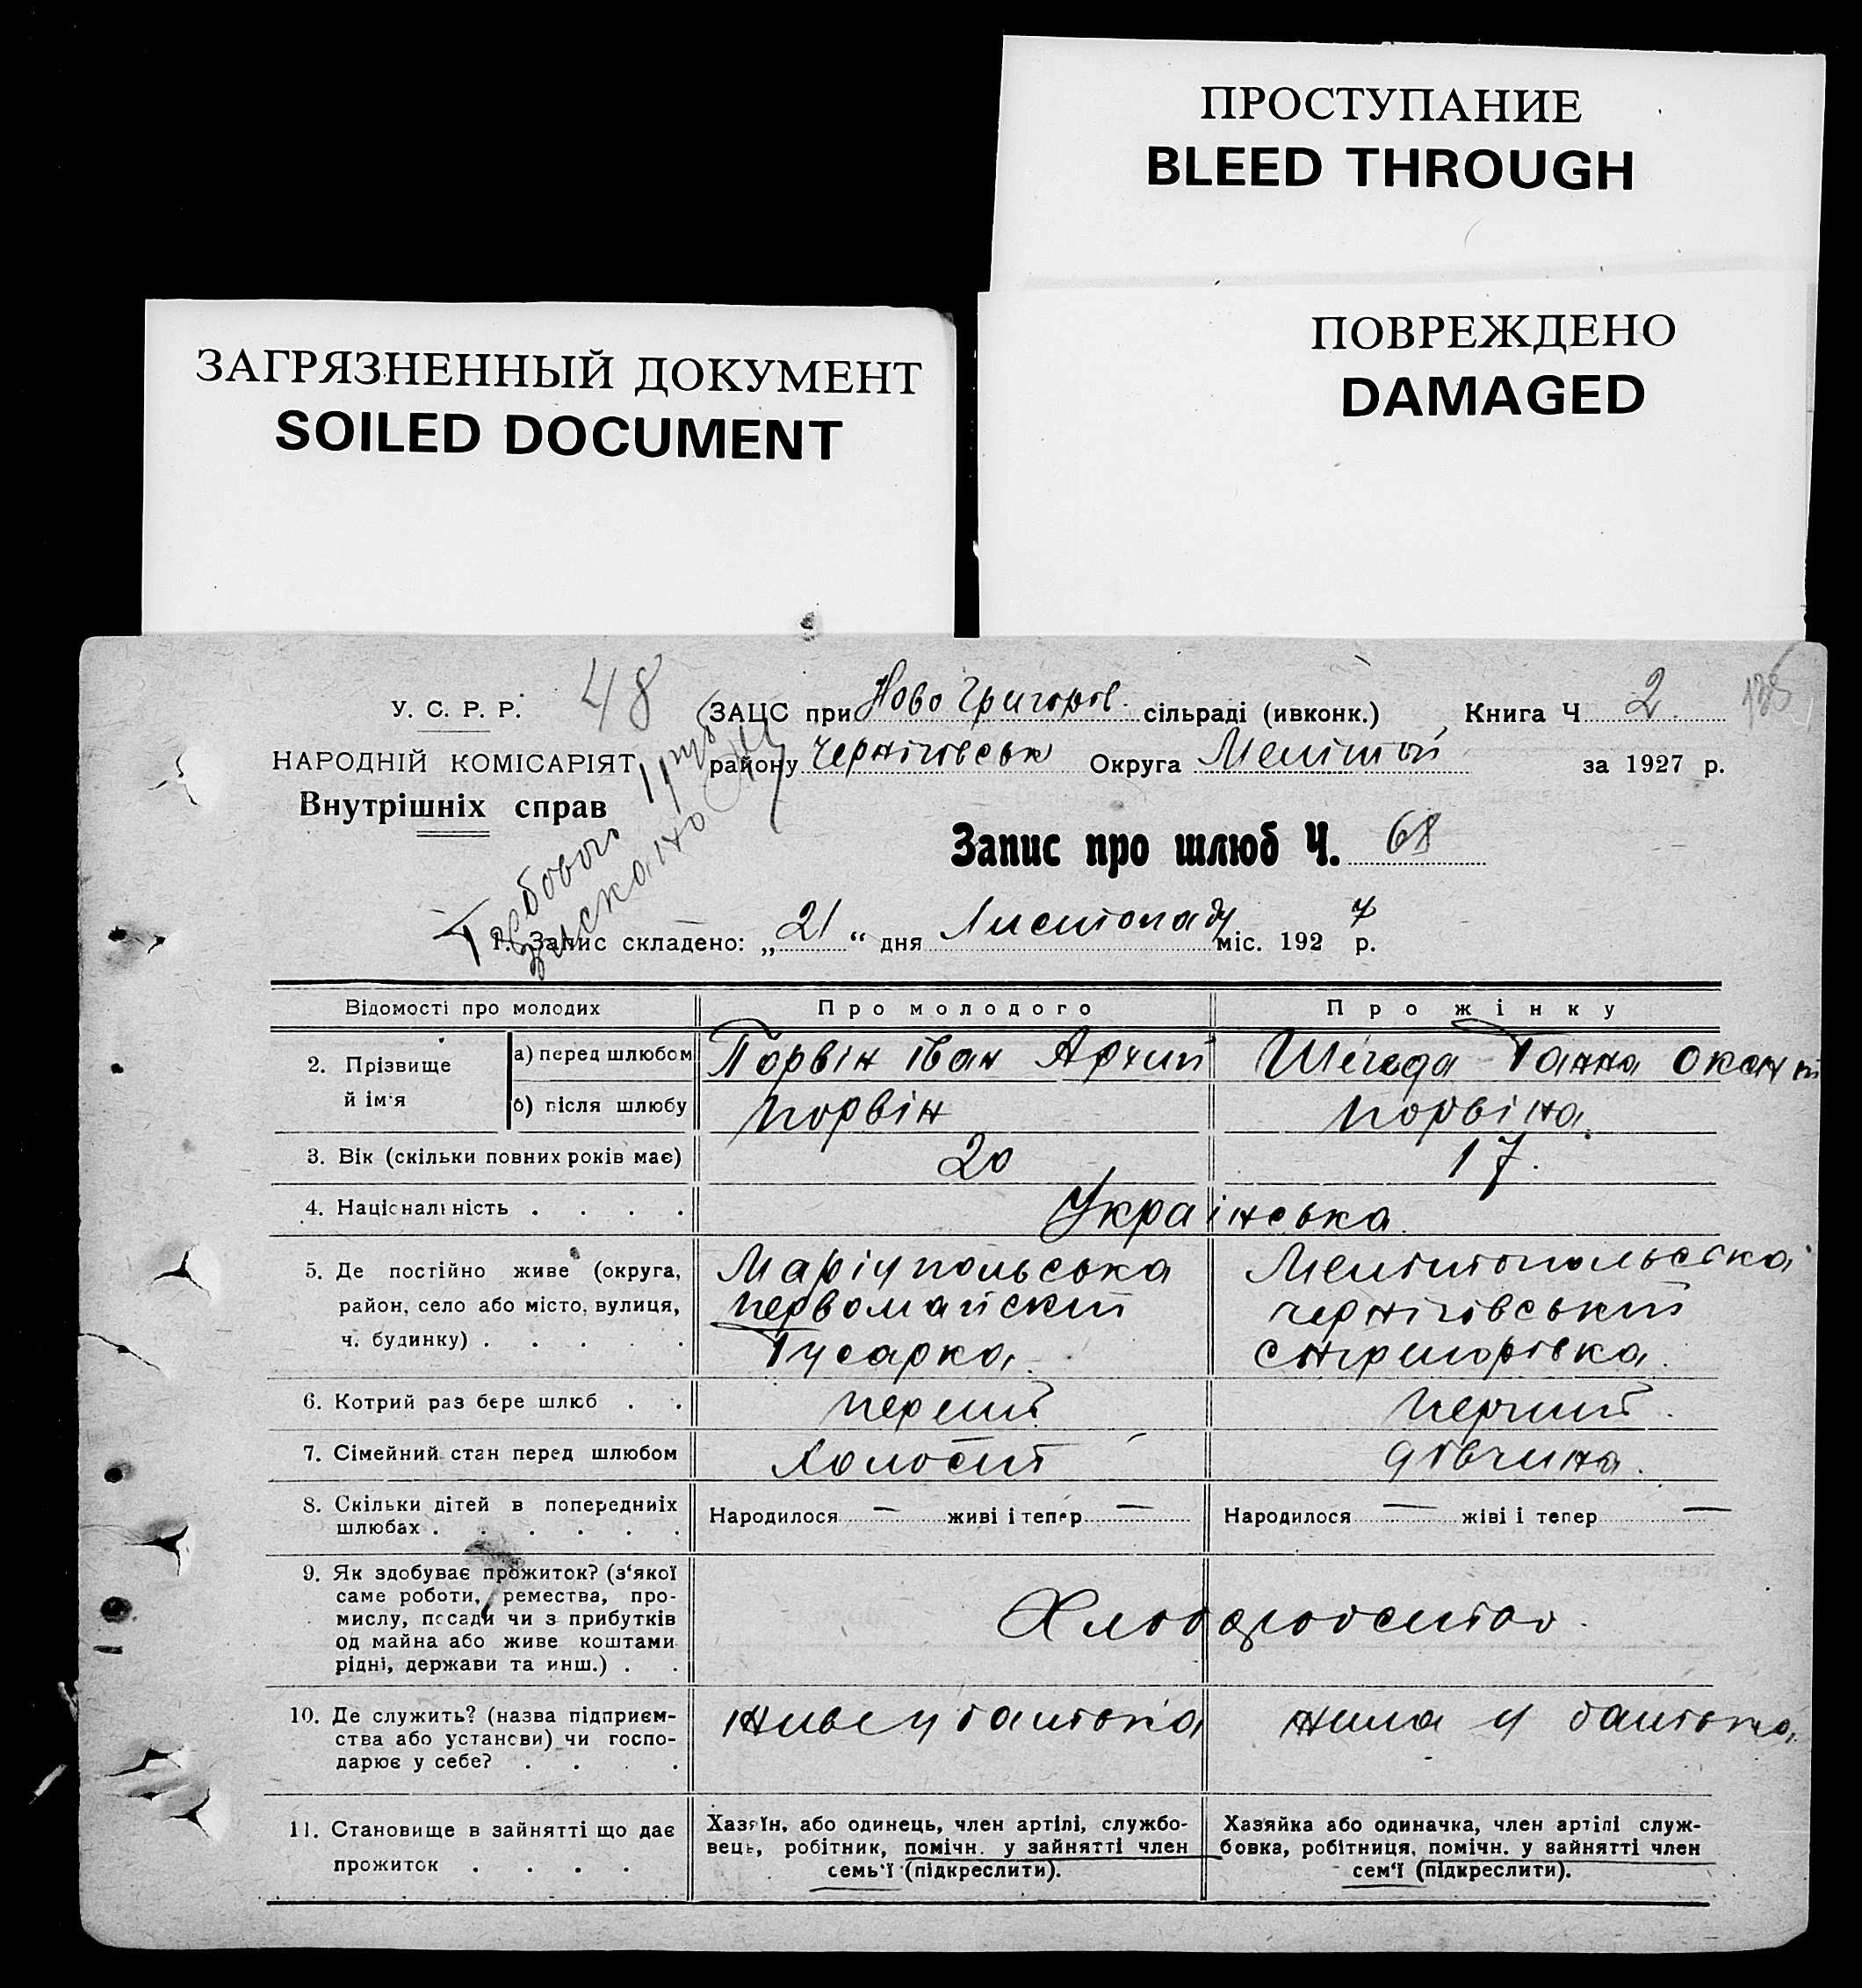 ПРОСТУПАНИЕ
BLEED THROUGH
ПОВРЕЖДЕНО
DAMAGED
ЗАГРЯЗНЕННЫЙ ДОКУМЕНТ
SOILED DOCUMENT
У. С. Р. Р.
48
ЗАЦС при Ново Григоров. сільраді (ивконк.) Книга Ч 2.
НАРОДНІЙ КОМІСАРІЯТ
району Чернігівськ Округа Меліtoп за 1927 р.
Внутрішніх справ
Запис про шлюб Ч. 68
1. Запис складено: „21“ дня Листопаду міс. 1927 р.
Відомості про молодих Про молодого Про жінку
2. Прізвище й ім'я
а) перед шлюбом Порвін Іван Архип Ганна
б) після шлюбу Порвін Порвіна
3. Вік (скільки повних років має) 20 17.
4. Національність . . . . Українська
5. Де постійно живе (округа, Маріупольська Мелитопольська
район, село або місто, вулиця, первомайский чернігівський
ч. будинку) . . . . . Гусарка.
6. Котрий раз бере шлюб . . перший перший.
7. Сімейний стан перед шлюбом Холостий дівчина.
8. Скільки дітей в попередниіх
шлюбах . . . . . .
Народилося — живі і тепер — Народилося — жіві і тепер —
9. Як здобуває прожиток? (з'якої
саме роботи, ремества, про-
мислу, посади чи з прибутків
од майна або живе коштами
рідні, держави та инш.) . .
10. Де служить? (назва підприєм-
ства або установи) чи госпо-
дарює у себе? . . . .
живе у батька жила у батька.
11. Становище в зайнятті що дає
прожиток . . . .
Хазяїн, або одинець, член артілі, службо-
вець, робітник, помічн. у зайнятті член
семь'ї (підкреслити).
Хазяйка або одиначка, член артілі служ-
бовка, робітниця, помічн. у зайнятті член
сем'ї (підкреслити).